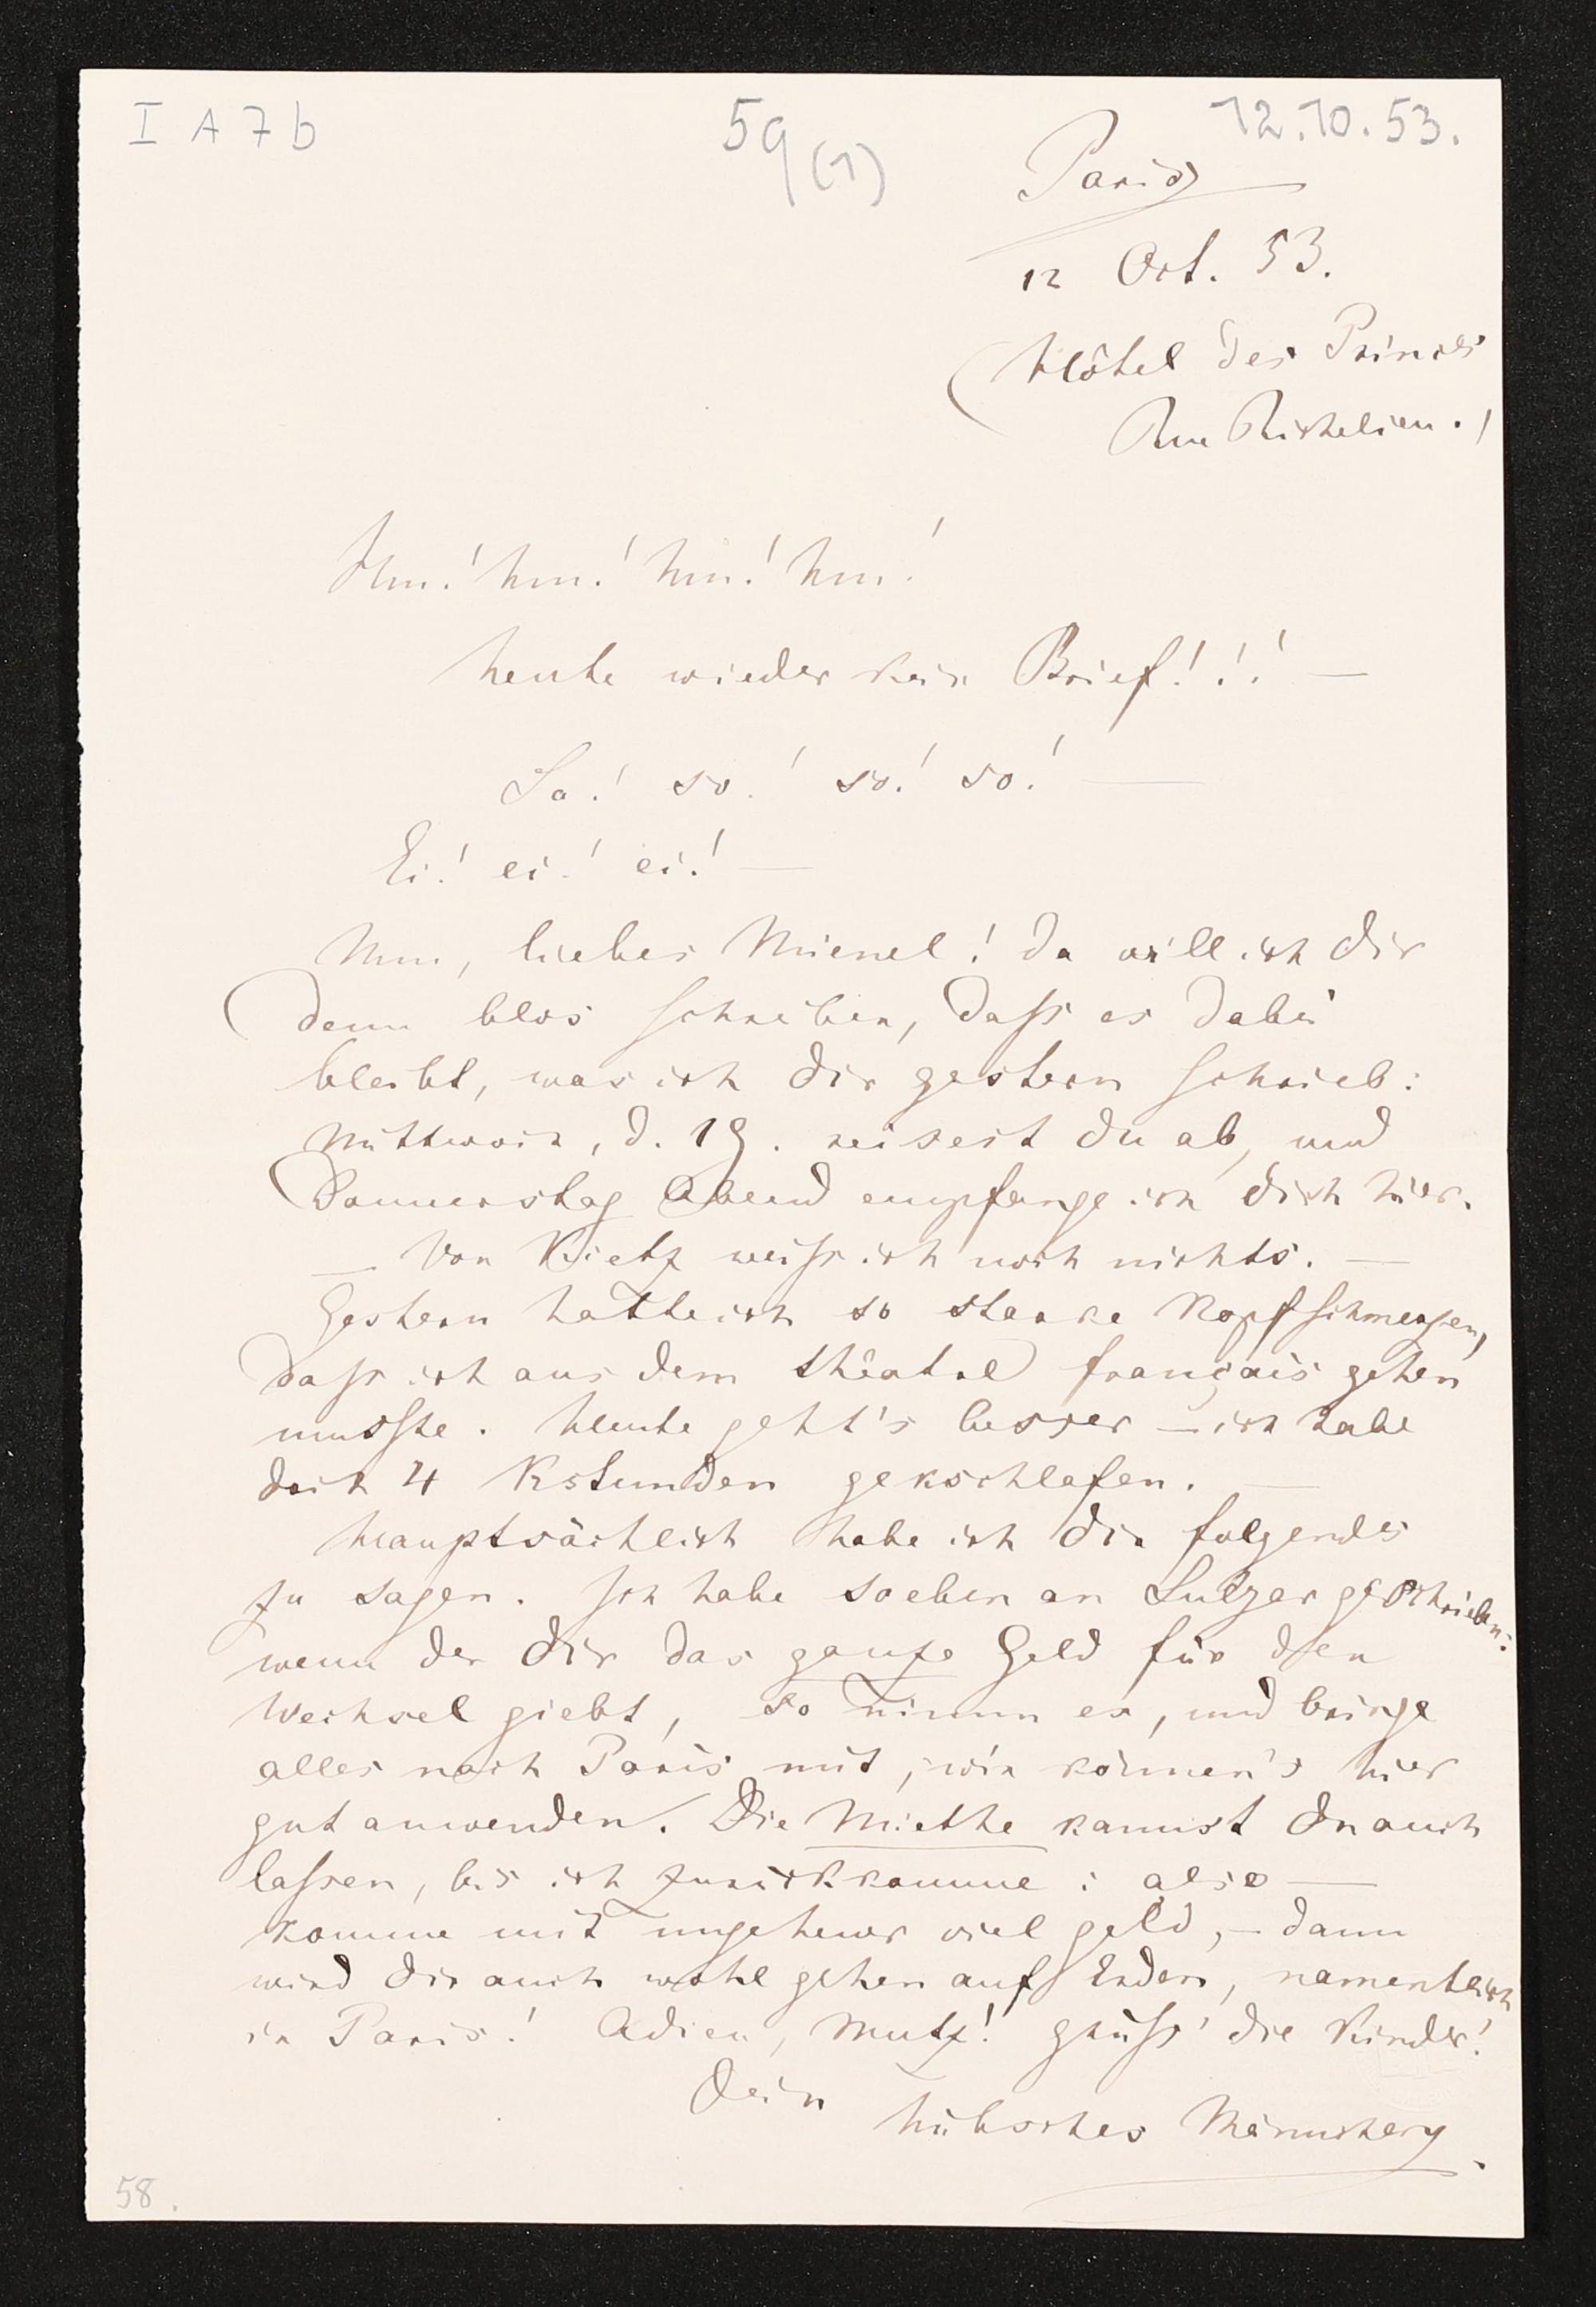 I A 7 b
59 (1)
12.10.53.
Paris
12 Oct. 53.
(Hôtel des Princes
Rue Richelieu.)
Hm! hm! hm! hm!
heute wieder kein Brief!!! —
So! so! so! so! —
Ei! ei! ei! —
Nun, liebes Mienel! Da will ich dir
denn blos schreiben, dass es dabei
bleibt, was ich dir gestern schrieb:
Mittwoch, d. 19. reisest du ab, und
Donnerstag Abend empfange ich dich hier.
— Von Kietz weiss ich noch nichts. —
Gestern hatte ich so starke Kopfschmerzen,
dass ich aus dem théatre français gehen
musste. Heute geht's besser — ich habe
doch 4 Kstunden gekschlafen. —
Hauptsächlich habe ich dir folgendes
zu sagen. Ich habe soeben an Sulzer geschrieben:
wenn der dir das ganze Geld für den
Wechsel giebt, so nimm es, und bringe
alles nach Paris mit, wir können's hier
gut anwenden. Die Miethe kannst du auch
lassen, bis ich zurückkomme: also —
komme mit ungeheuer viel geld, — dann
wird dir auch wohl gehen auf Erden, namentlich
in Paris! Adieu, Mutz! grüss' die Kinder!
Dein
hübsches Männchen.
58.